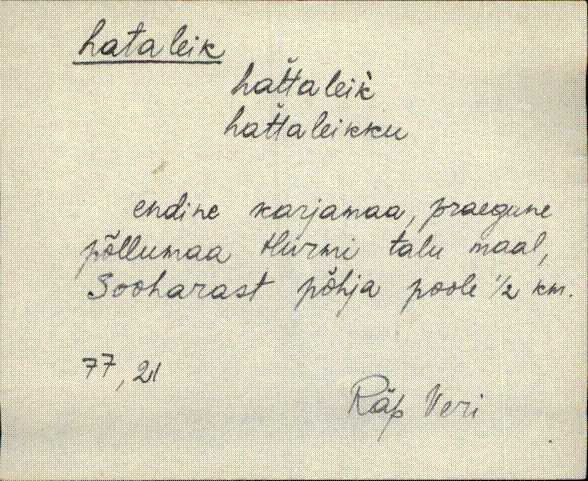 hataleik
hat̆taleik̀
hat̆taleikku
endine karjamaa, praegune
põllumaa Hurmi talu maal,
Sooharast põhja poole 1/2 km.
77, 21
Räp Veri